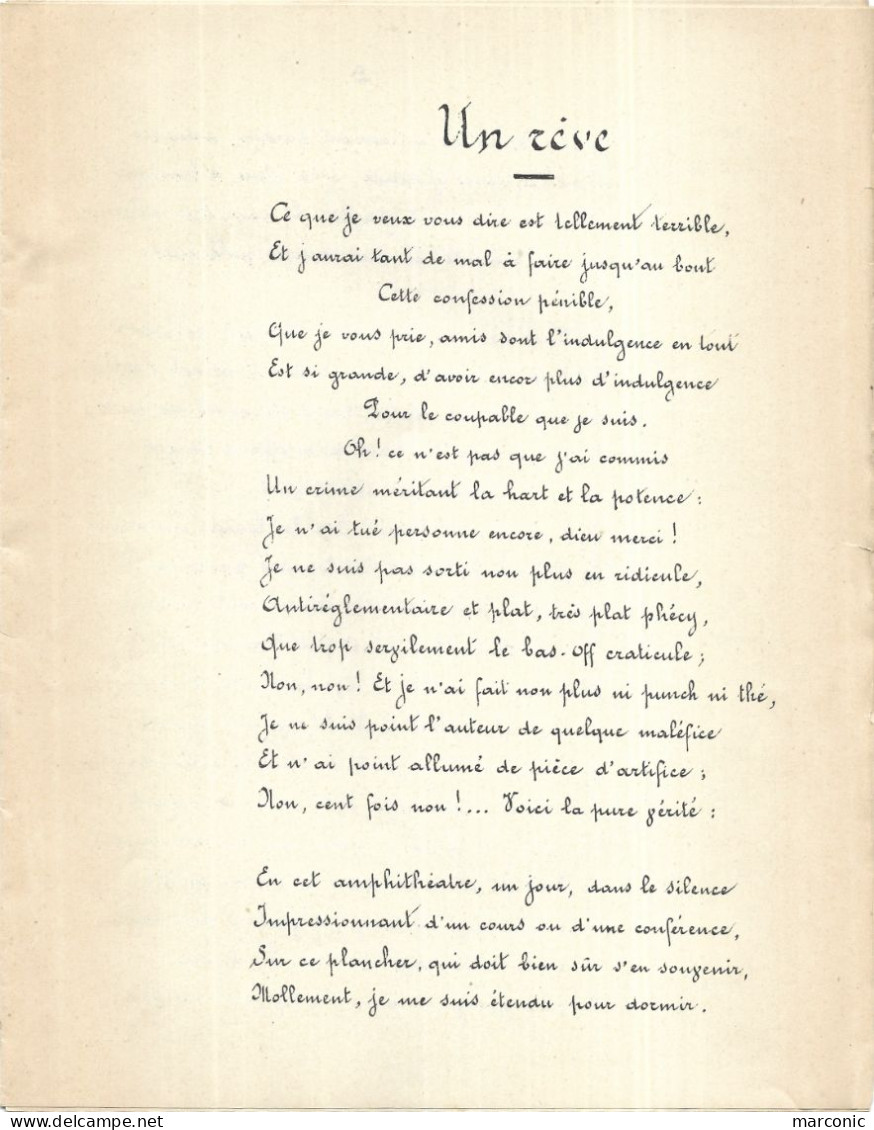 Un rêve
Ce que je veux vous dire est tellement terrible,
Et j'aurai tant de mal à faire jusqu'au bout
Cette confession pénible,
Que je vous prie, amis dont l'indulgence en tout
Est si grande, d'avoir encor plus d'indulgence
Pour le coupable que je suis.
Oh! ce n'est pas que j'ai commis
Un crime méritant la hart et la potence :
Je n'ai tué personne encore, dieu merci !
Je ne suis pas sorti non plus en ridicule,
Antiréglementaire et plat, très plat phécy,
Que trop servilement le bas-off craticule ;
Non, non ! Et je n'ai fait non plus ni punch ni thé,
Je ne suis point l'auteur de quelque maléfice
Et n'ai point allumé de pièce d'artifice ;
Non, cent fois non !... Voici la pure vérité :
En cet amphithéâtre, un jour, dans le silence
Impressionnant d'un cours ou d'une conférence,
Sur ce plancher, qui doit bien sûr s'en souvenir,
Mollement, je me suis étendu pour dormir.
delcampe.net
marconic